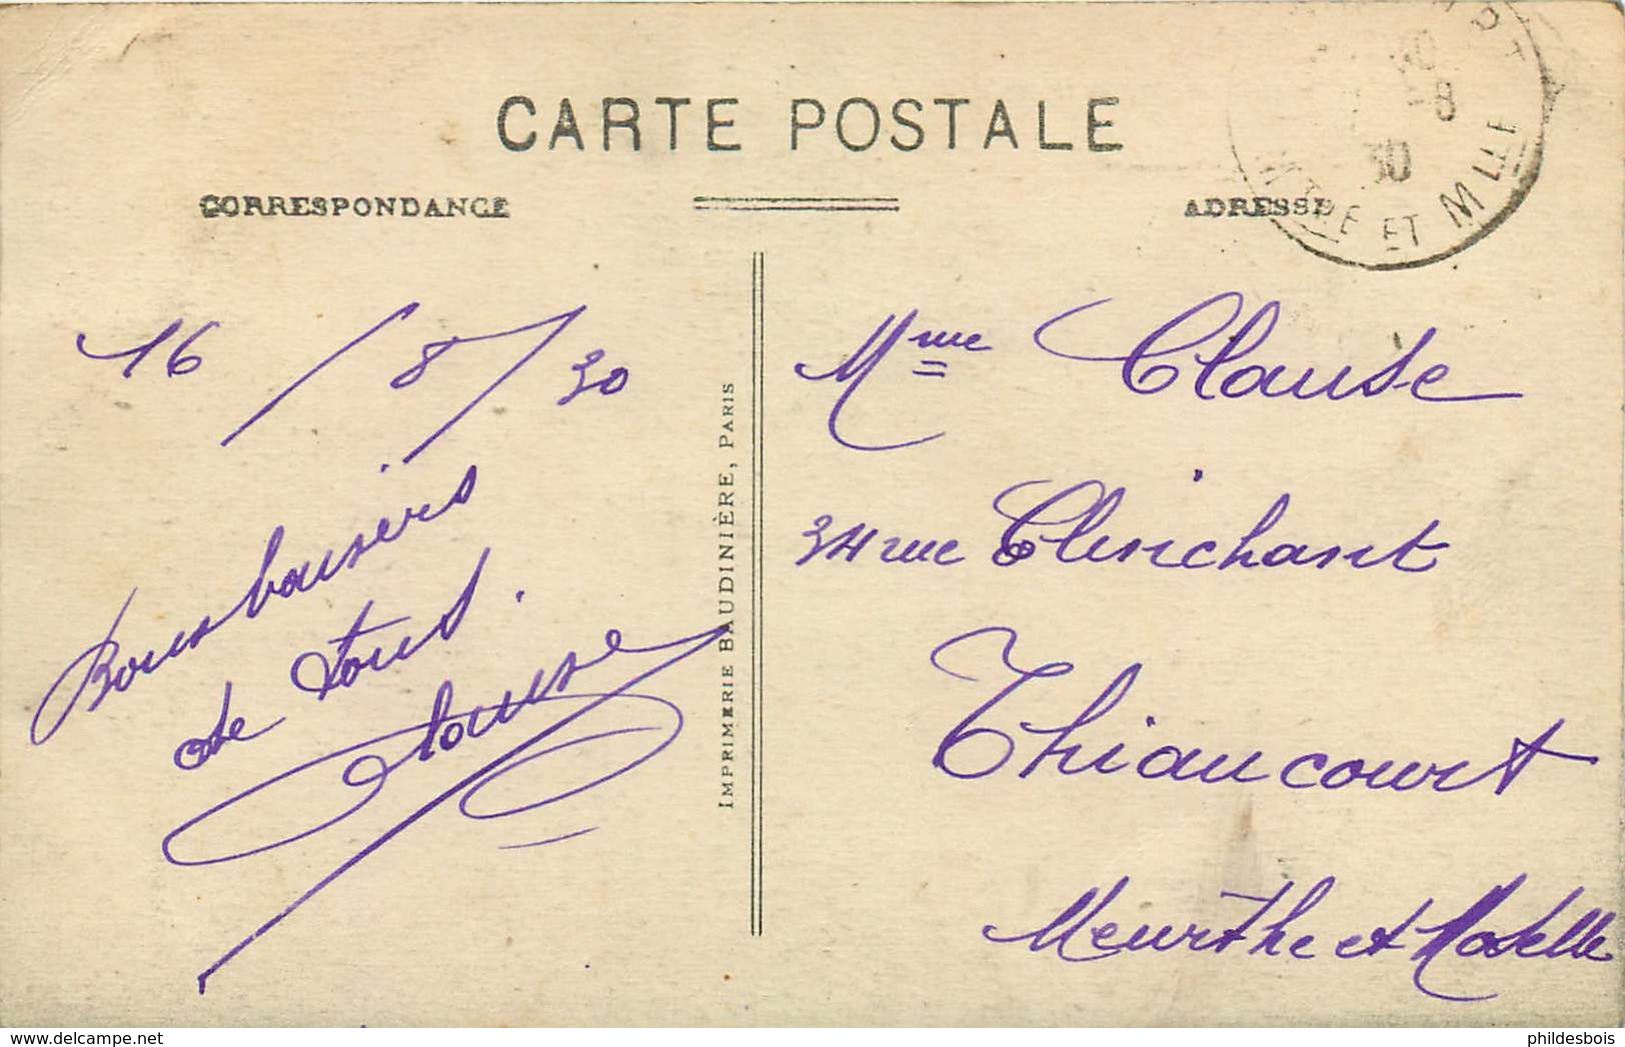 CARTE POSTALE
CORRESPONDANCE
ADRESSE
30
MTHE ET MLLE
16 / 8 / 30
Bons baisers
de tous.
Clause
IMPRIMERIE BAUDINIÈRE, PARIS
Mme Clause
34 rue Clinchant
Thiaucourt
Meurthe et Moselle
delcampe.net
phildesbois